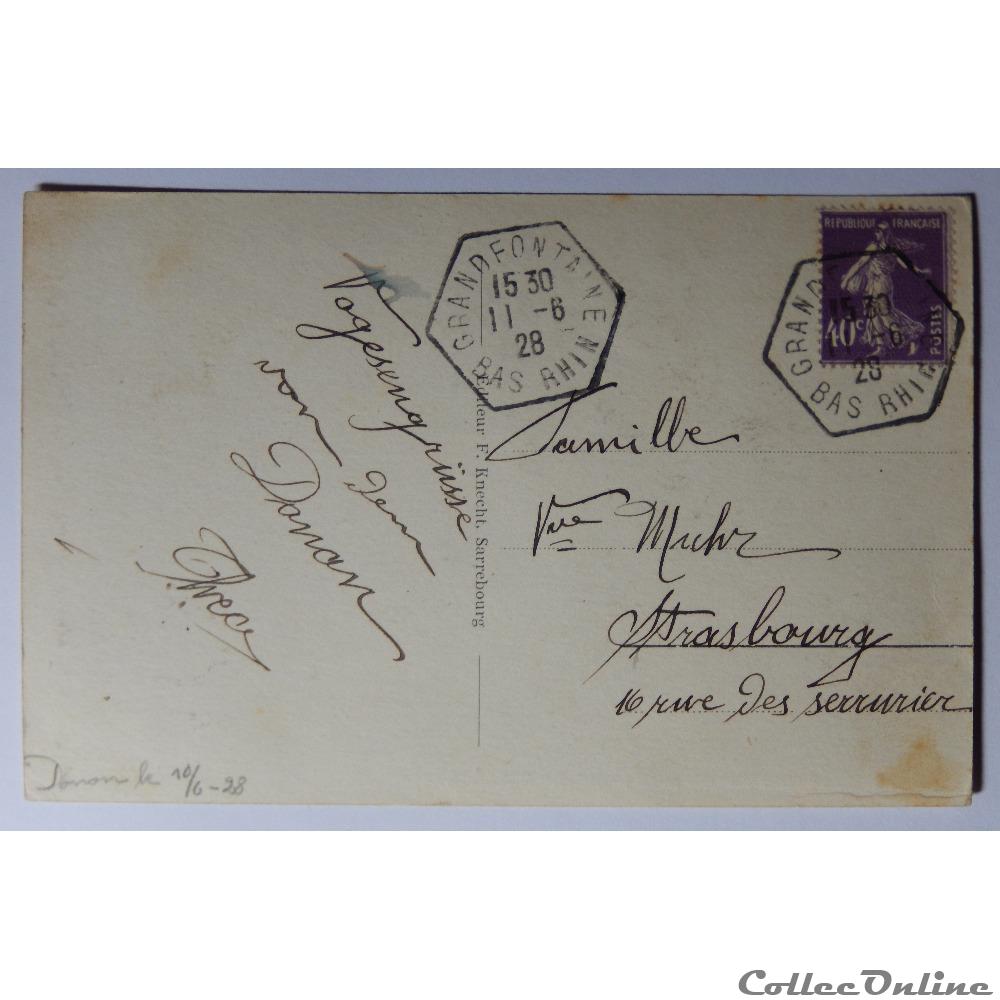 Vogesengrüsse
von dem
Donon
Donon le 10/6-28
Editeur F. Knecht, Sarrebourg
GRANDFONTAINE
15 30
11 -6
28
BAS RHIN
REPUBLIQUE FRANÇAISE
40c
POSTES
GRAND
15 30
11 -6
28
BAS RHIN
Famille
Vve Muhr
Strasbourg
16 rue des serrurier
CollecOnline